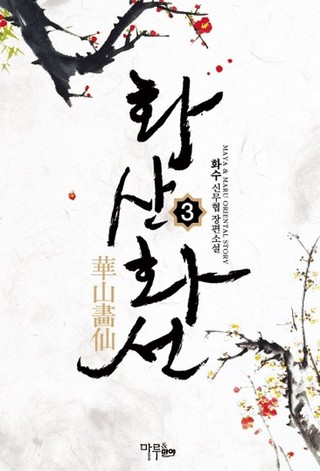 화산화선
3
華山畵仙
화수 신무협 장편소설
MAYA & MARU ORIENTAL STORY
마루&마야